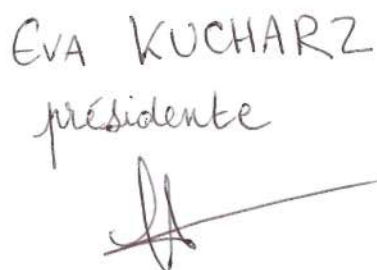 EVA KUCHARZ
présidente